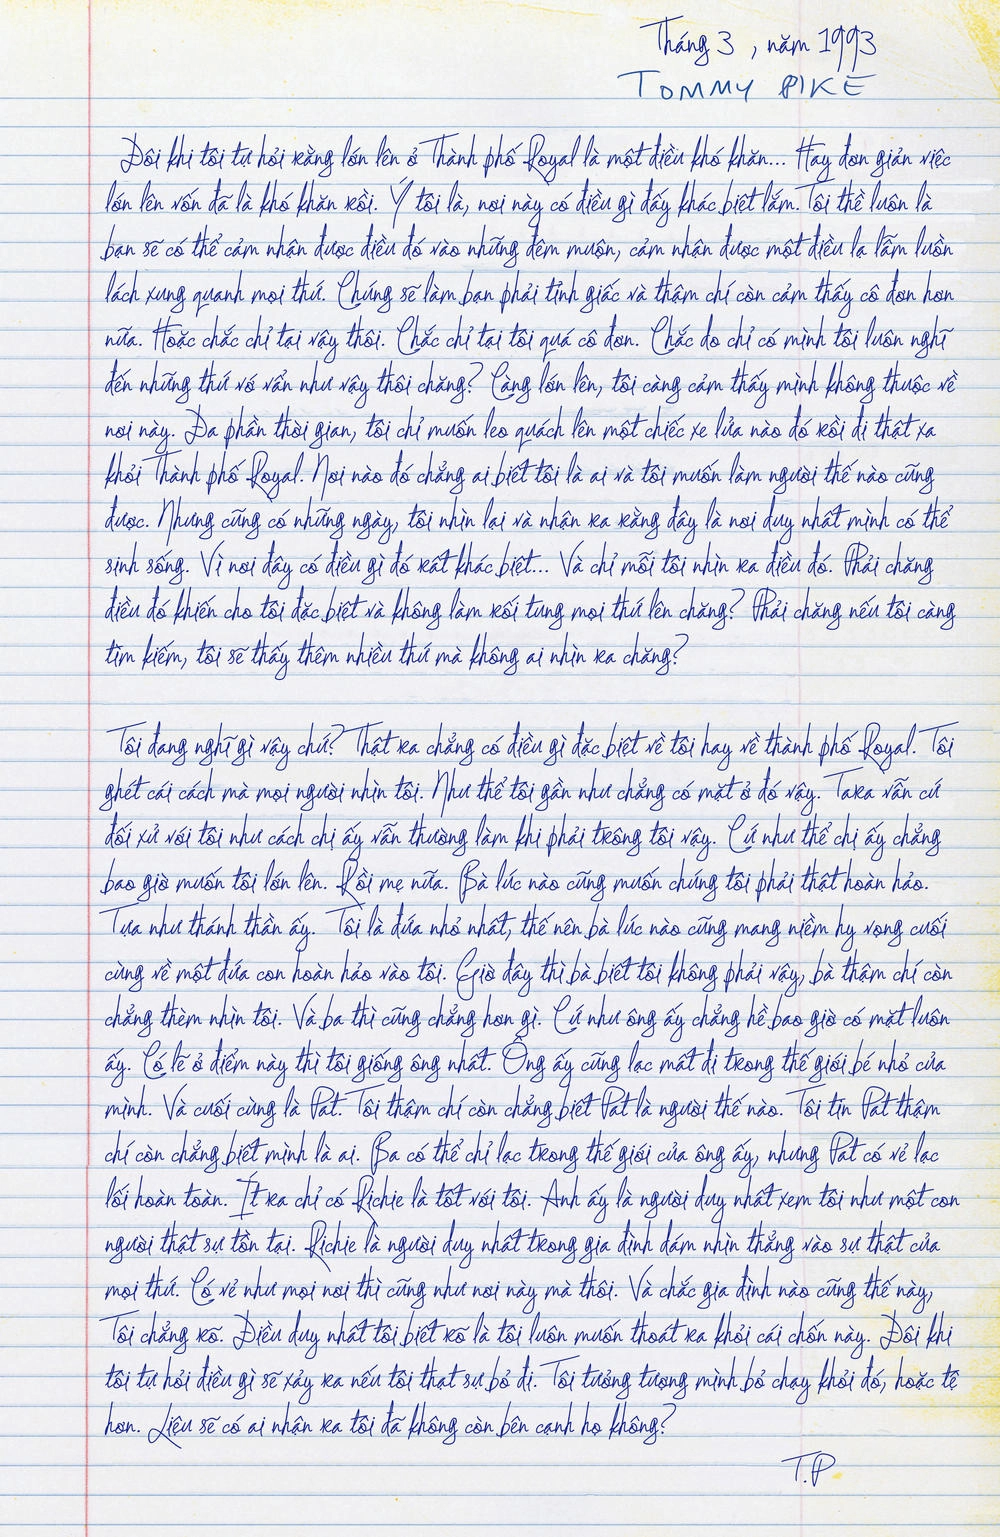 Tháng 3 , năm 1993
TOMMY PIKE
Đôi khi tôi tự hỏi rằng lớn lên ở Thành phố Royal là một điều khó khăn... Hay đơn giản việc
lớn lên vốn đã là khó khăn rồi. Ý tôi là, nơi này có điều gì đấy khác biệt lắm. Tôi thề luôn là
bạn sẽ có thể cảm nhận được điều đó vào những đêm muộn, cảm nhận được một điều lạ lẫm luồn
lách xung quanh mọi thứ. Chúng sẽ làm bạn phải tỉnh giấc và thậm chí còn cảm thấy cô đơn hơn
nữa. Hoặc chắc chỉ tại vậy thôi. Chắc chỉ tại tôi quá cô đơn. Chắc do chỉ có mình tôi luôn nghĩ
đến những thứ vớ vẩn như vậy thôi chăng? Càng lớn lên, tôi càng cảm thấy mình không thuộc về
nơi này. Đa phần thời gian, tôi chỉ muốn leo quách lên một chiếc xe lửa nào đó rồi đi thật xa
khỏi Thành phố Royal. Nơi nào đó chẳng ai biết tôi là ai và tôi muốn làm người thế nào cũng
được. Nhưng cũng có những ngày, tôi nhìn lại và nhận ra rằng đây là nơi duy nhất mình có thể
sinh sống. Vì nơi đây có điều gì đó rất khác biệt... Và chỉ mỗi tôi nhìn ra điều đó. Phải chăng
điều đó khiến cho tôi đặc biệt và không làm rối tung mọi thứ lên chăng? Phải chăng nếu tôi càng
tìm kiếm, tôi sẽ thấy thêm nhiều thứ mà không ai nhìn ra chăng?
Tôi đang nghĩ gì vậy chứ? Thật ra chẳng có điều gì đặc biệt về tôi hay về thành phố Royal. Tôi
ghét cái cách mà mọi người nhìn tôi. Như thể tôi gần như chẳng có mặt ở đó vậy. Tara vẫn cứ
đối xử với tôi như cách chị ấy vẫn thường làm khi phải trông tôi vậy. Cứ như thể chị ấy chẳng
bao giờ muốn tôi lớn lên. Rồi mẹ nữa. Bà lúc nào cũng muốn chúng tôi phải thật hoàn hảo.
Tựa như thánh thần ấy. Tôi là đứa nhỏ nhất, thế nên bà lúc nào cũng mang niềm hy vọng cuối
cùng về một đứa con hoàn hảo vào tôi. Giờ đây thì bà biết tôi không phải vậy, bà thậm chí còn
chẳng thèm nhìn tôi. Và ba thì cũng chẳng hơn gì. Cứ như ông ấy chẳng hề bao giờ có mặt luôn
ấy. Có lẽ ở điểm này thì tôi giống ông nhất. Ông ấy cũng lạc mất đi trong thế giới bé nhỏ của
mình. Và cuối cùng là Pat. Tôi thậm chí còn chẳng biết Pat là người thế nào. Tôi tin Pat thậm
chí còn chẳng biết mình là ai. Ba có thể chỉ lạc trong thế giới của ông ấy, nhưng Pat có vẻ lạc
lối hoàn toàn. Ít ra chỉ có Richie là tốt với tôi. Anh ấy là người duy nhất xem tôi như một con
người thật sự tồn tại. Richie là người duy nhất trong gia đình dám nhìn thẳng vào sự thật của
mọi thứ. Có vẻ như mọi nơi thì cũng như nơi này mà thôi. Và chắc gia đình nào cũng thế này,
Tôi chẳng rõ. Điều duy nhất tôi biết rõ là tôi luôn muốn thoát ra khỏi cái chốn này. Đôi khi
tôi tự hỏi điều gì sẽ xảy ra nếu tôi thạt sự bỏ đi. Tôi tưởng tượng mình bỏ chạy khỏi đó, hoặc tệ
hơn. Liệu sẽ có ai nhận ra tôi đã không còn bên cạnh họ không?
T.P